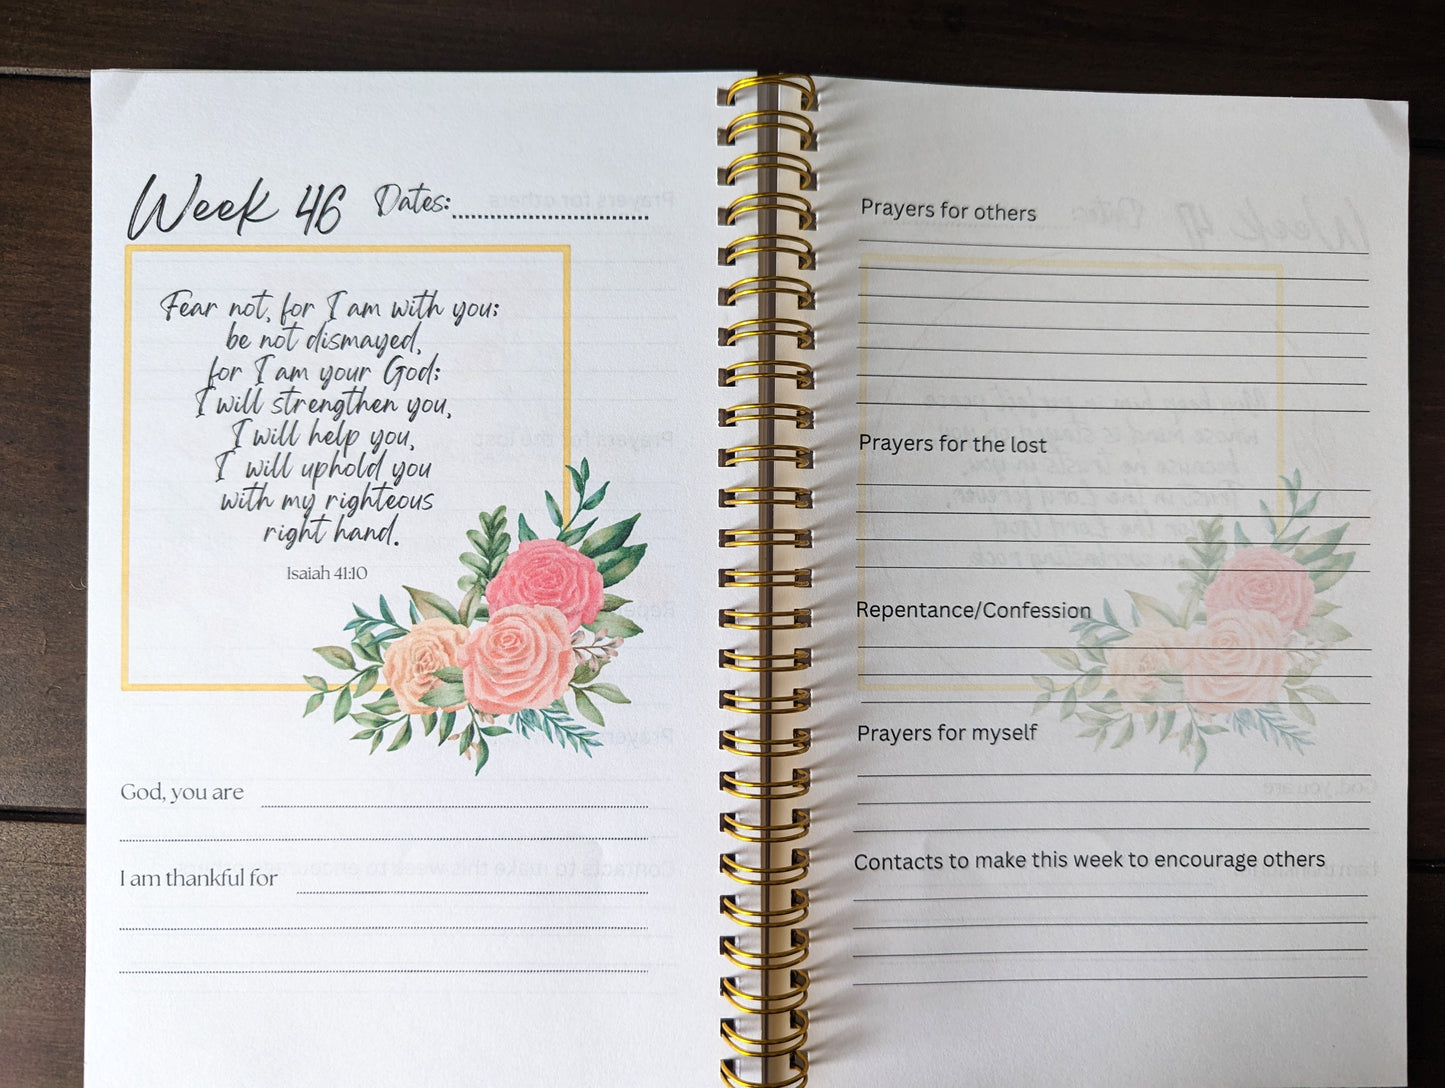 Week 46 Dates:
Fear not, for I am with you;
be not dismayed,
for I am your God;
I will strengthen you,
I will help you,
I will uphold you
with my righteous
right hand.
Isaiah 41:10
God, you are
I am thankful for
Prayers for others
Prayers for the lost
Repentance/Confession
Prayers for myself
Contacts to make this week to encourage others